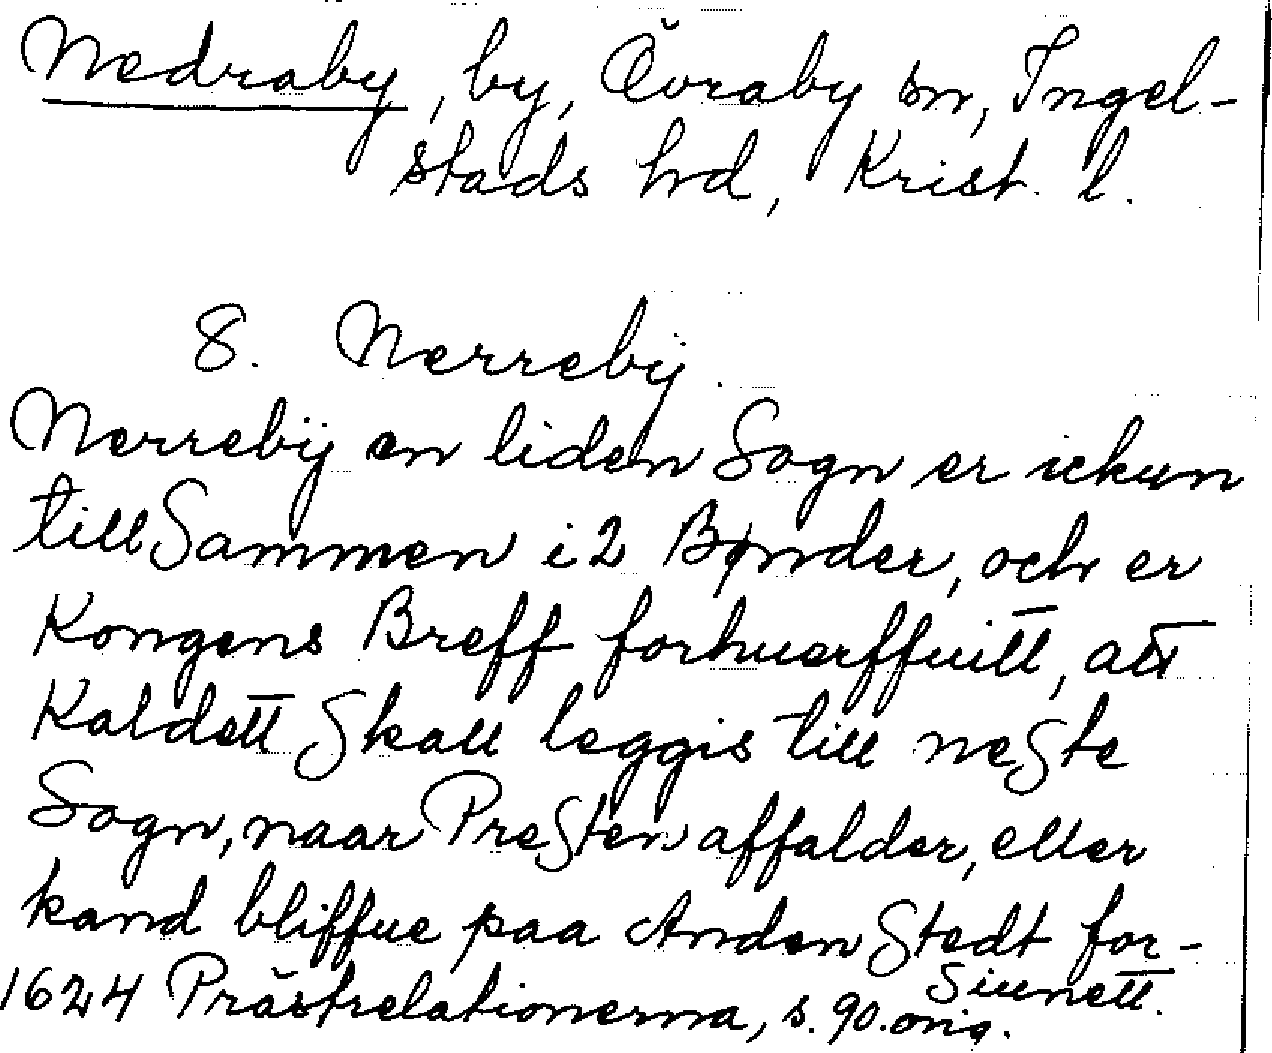 Nedraby, by, Övraby sn, Ingel-
stads hd, Krist. l.
8. Nerrebÿ.
Nerrebÿ en liden Sogn er ickun
till Sammen i 2 Bønder, och er
Kongens Breff forhuerffuitt, att
Kaldett Skall leggis till neste
Sogn, naar Presten affalder, eller
kand bliffue paa Anden Stedt for-
Siunett.
1624 Prästrelationerna, s. 90. orig.